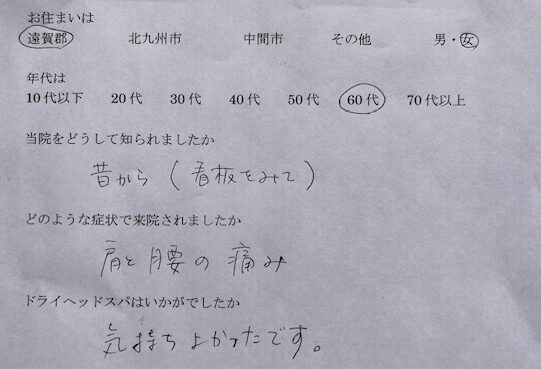 お住まいは
遠賀郡 北九州市 中間市 その他 男・女
年代は
10代以下 20代 30代 40代 50代 60代 70代以上
当院をどうして知られましたか
昔から(看板をみて)
どのような症状で来院されましたか
肩と腰の痛み
ドライヘッドスパはいかがでしたか
気持ちよかったです。